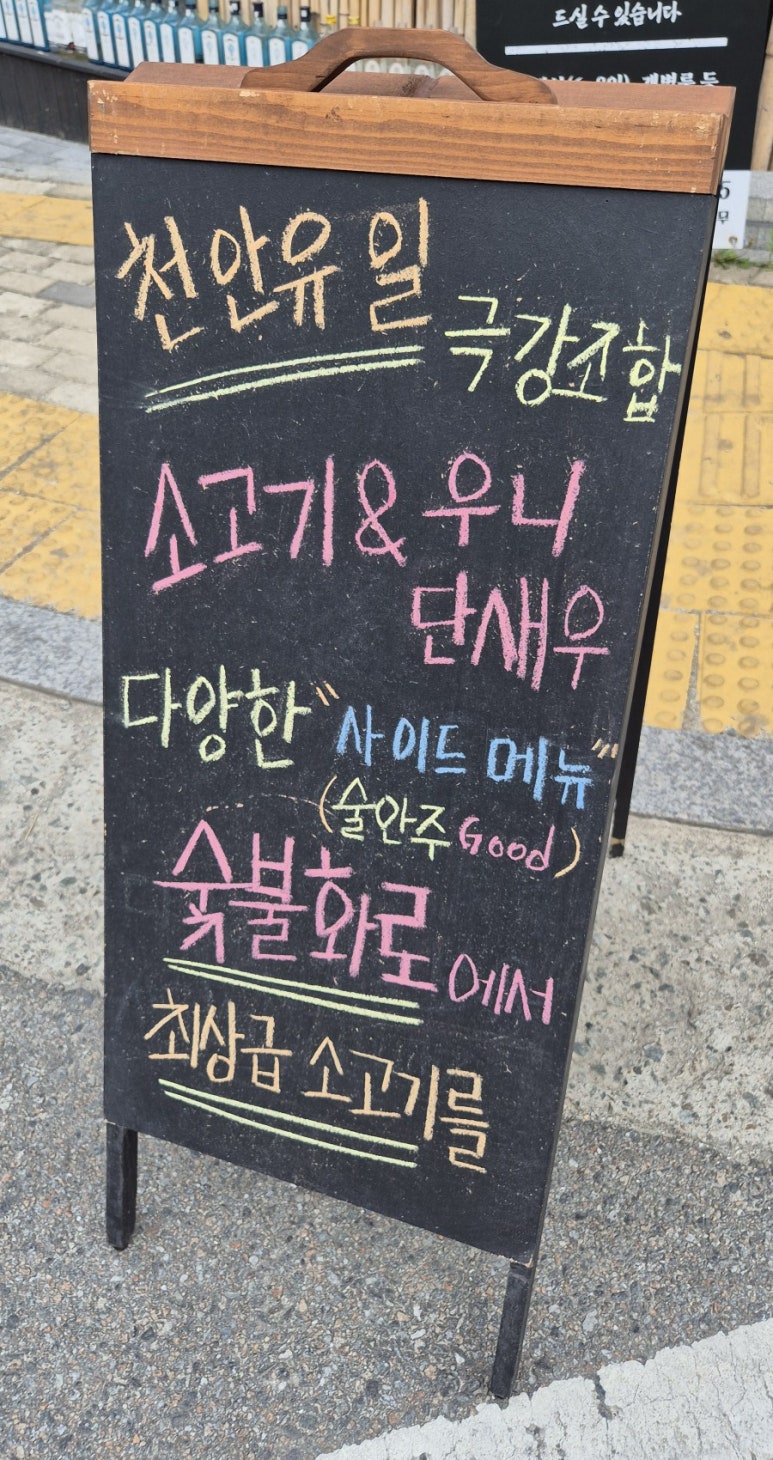 드실 수 있습니다
천안유일
극강조합
소고기 & 우니
단새우
다양한 "사이드 메뉴"
(술안주 Good)
숯불화로에서
최상급 소고기를